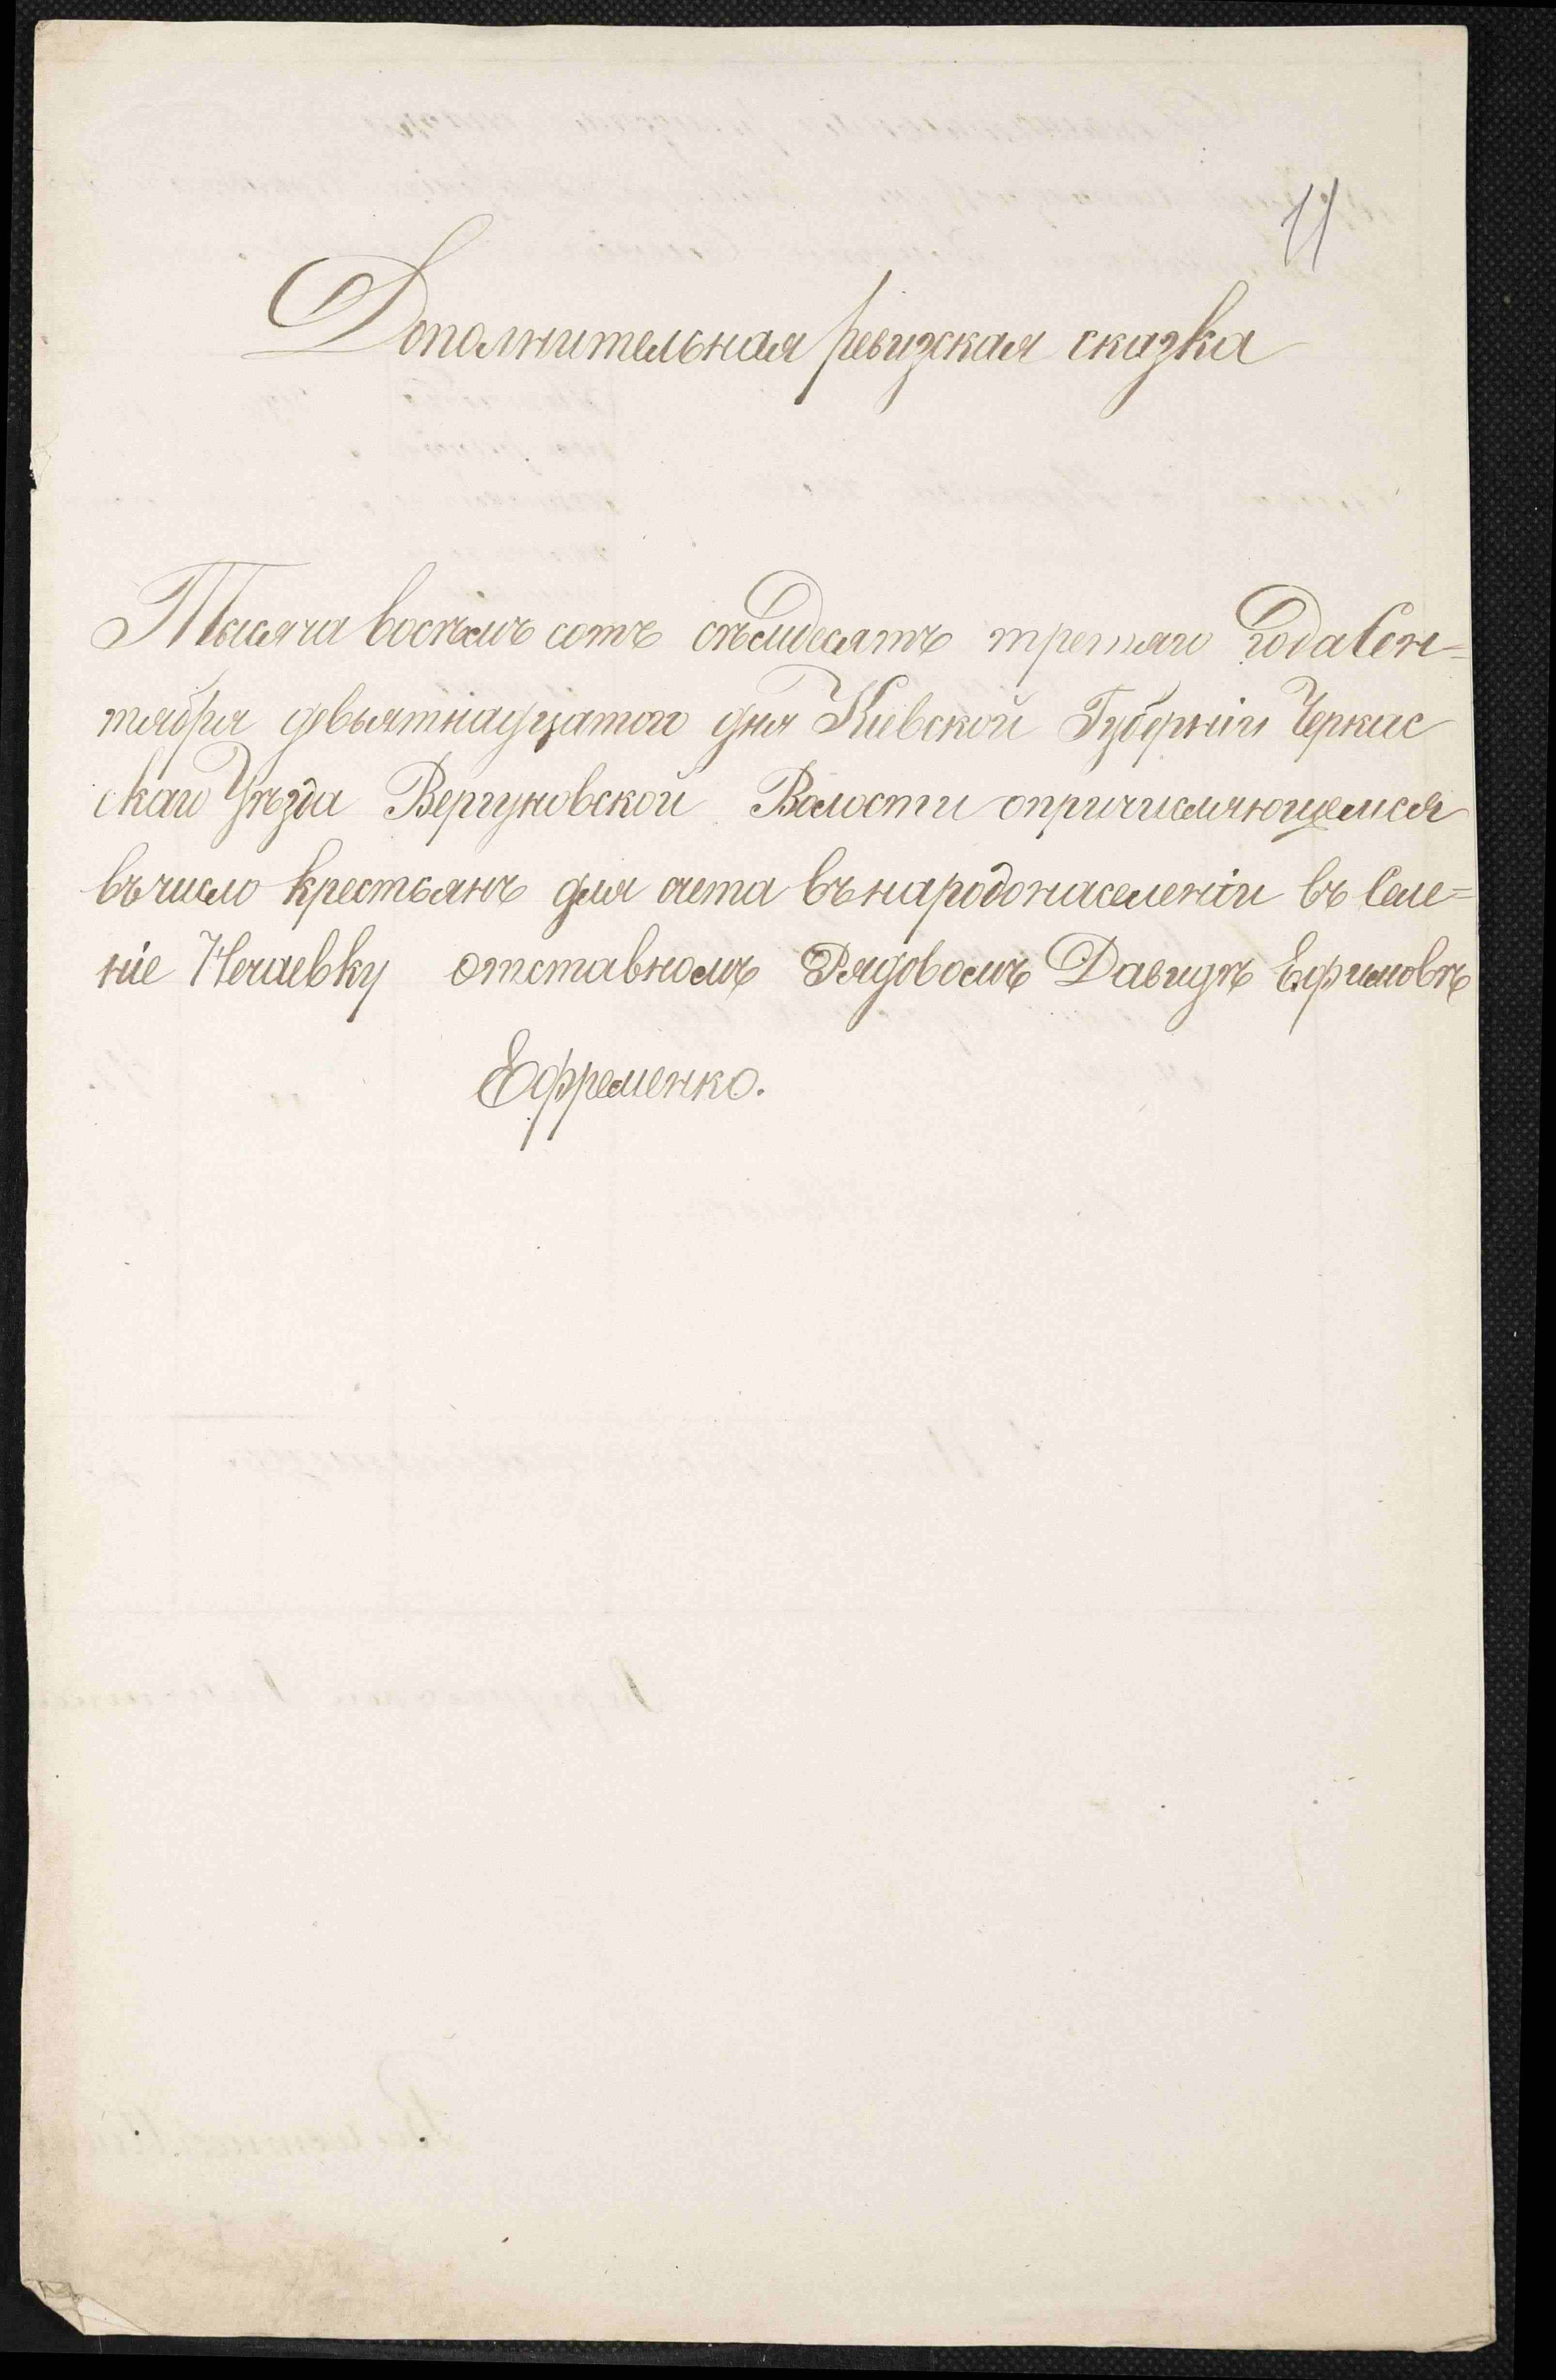 11
Дополнительная ревизская сказка
Тысяча восѣмъ сотъ сѣмдесятъ третяго Года Сен=
тября девьятнадцатого дня Кіевской Губерніи Черкас
скаго Уѣзда Вергуновской Волости опричисляющемся
въ число крестьянъ для счета въ народонаселеніи въ Селе=
ніе Нечаевку отставномъ Рядовомъ Давидѣ Ефимовѣ
Ефременко.